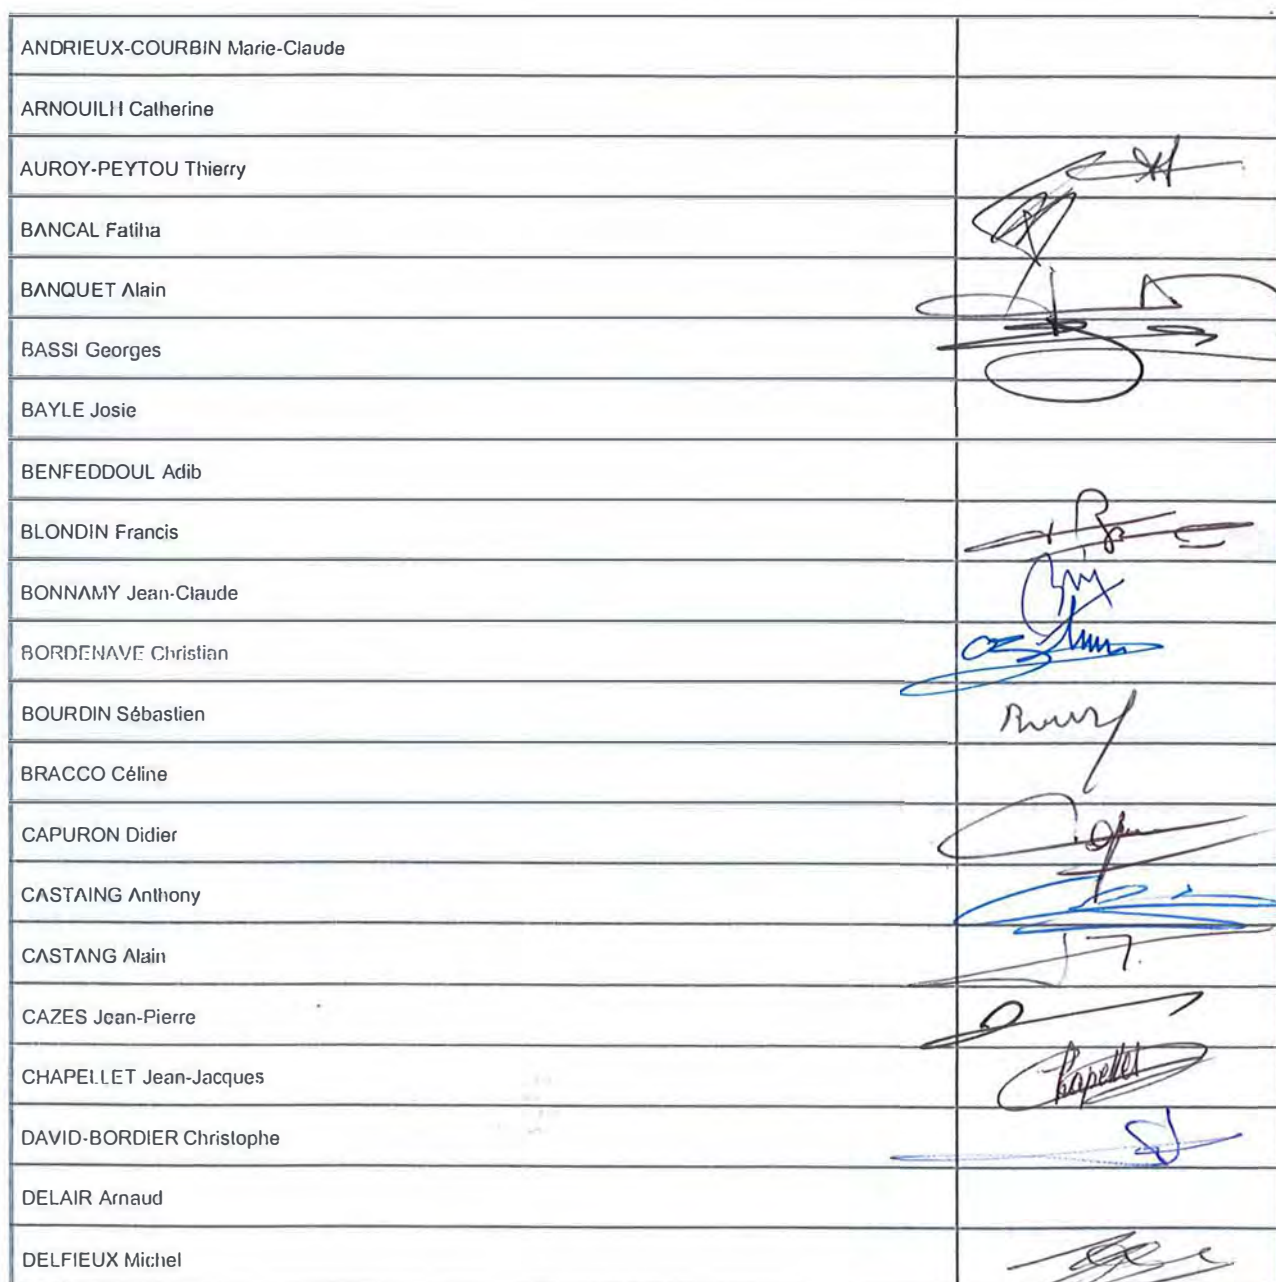 ANDRIEUX-COURBIN Marie-Claude
ARNOUILH Catherine
AUROY-PEYTOU Thierry
BANCAL Fatiha
BANQUET Alain
BASSI Georges
BAYLE Josie
BENFEDDOUL Adib
BLONDIN Francis
BONNAMY Jean-Claude
BORDENAVE Christian
BOURDIN Sébastien
BRACCO Céline
CAPURON Didier
CASTAING Anthony
CASTANG Alain
CAZES Jean-Pierre
CHAPELLET Jean-Jacques Chapellet
DAVID-BORDIER Christophe
DELAIR Arnaud
DELFIEUX Michel